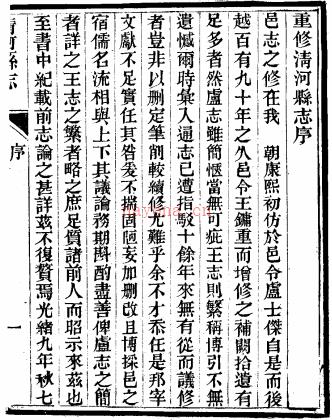 重修清河縣志序
邑志之修在我　朝康熙初仿於邑令盧士傑自是而後
越百有九十年之久邑令王鏞重而增修之補闕拾遺有
足多者然盧志雖簡愜當無可疵王志則繁稱博引不無
遺憾爾時彙入通志已遭指駁十餘年來無有從而議修
者豈非以刪定筆削較續修尤難乎余不才忝任是邦宰
文獻不足實任其咎爰不揣固陋妄加刪改且博採邑之
宿儒名流相與上下其議論務期斟酌盡善俾盧志之簡
者詳之王志之繁者略之庶足質諸前人而昭示來茲也
至書中紀載前志論之甚詳茲不復贅焉光緒九年秋七
清河縣志
序
一